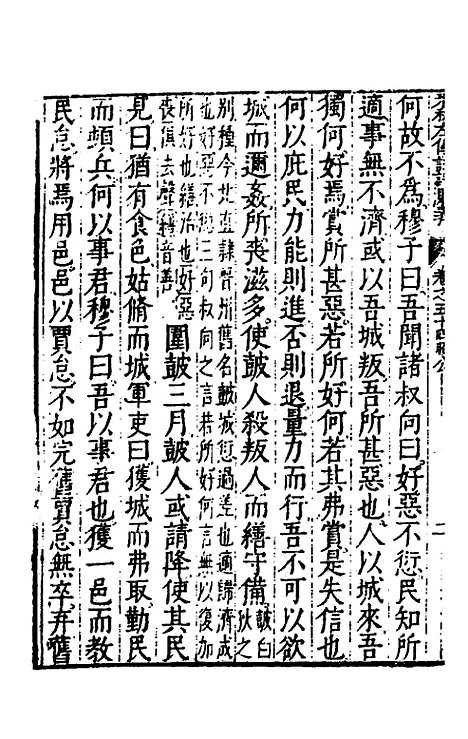 春秋左傳註評測義 卷之五十四昭公 二
何故不為穆子曰吾聞諸叔向曰好惡不愆民知所
適事無不濟或以吾城叛吾所甚惡也人以城來吾
獨何好焉賞所甚惡若所好何若其弗賞是失信也
何以庇民力能則進否則退量力而行吾不可以欲
城而邇姦所喪滋多使鼓人殺叛人而繕守備鼓白狄之
別種今北直隸晉州舊名鼓城愆過差也適歸濟成
也好惡不愆三句叔向之言若所好何言無以復加
所好也繕治也好惡喪俱去聲繕音善圍鼓三月鼓人或請降使其民
見曰猶有食色姑脩而城軍吏曰獲城而弗取勤民
而頓兵何以事君穆子曰吾以事君也獲一邑而教
民怠將焉用邑邑以賈怠不如完舊賈怠無卒弃舊